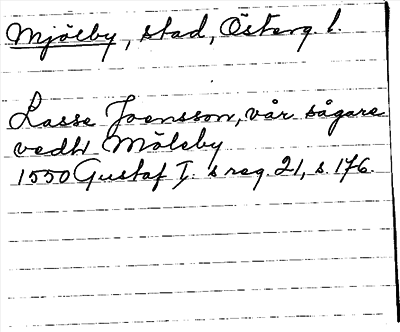 Mjölby, stad, Österg. l.
Lasse Joensson, vår sågare
vedh Möleby
1550 Gustaf I:s reg. 21, s. 176.